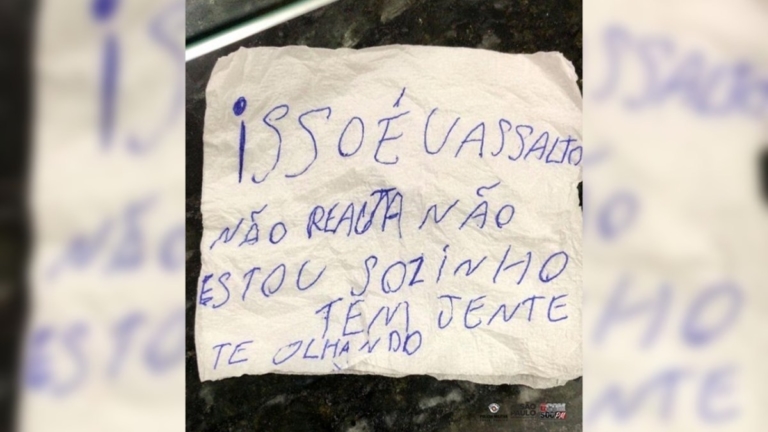 iSSO É U ASSALTO
NÃO REAGTA NÃO
ESTOU SOZINHO
TEM JENTE
TE OLHANDO
SÃO PAULO